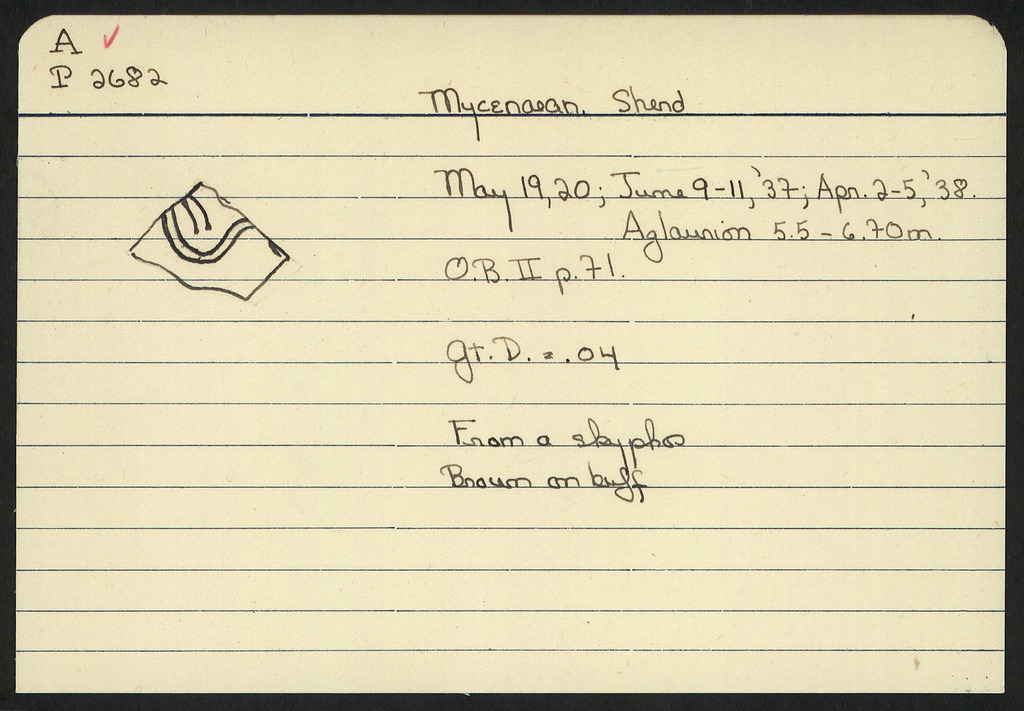 A ✓
P 2682
Mycenaean. Sherd
May 19, 20; June 9-11, '37; Apr. 2-5, '38.
Aglaurion 5.5 - 6.70m.
O.B. II p. 71.
Gt. D. = .04
From a skyphos
Brown on buff